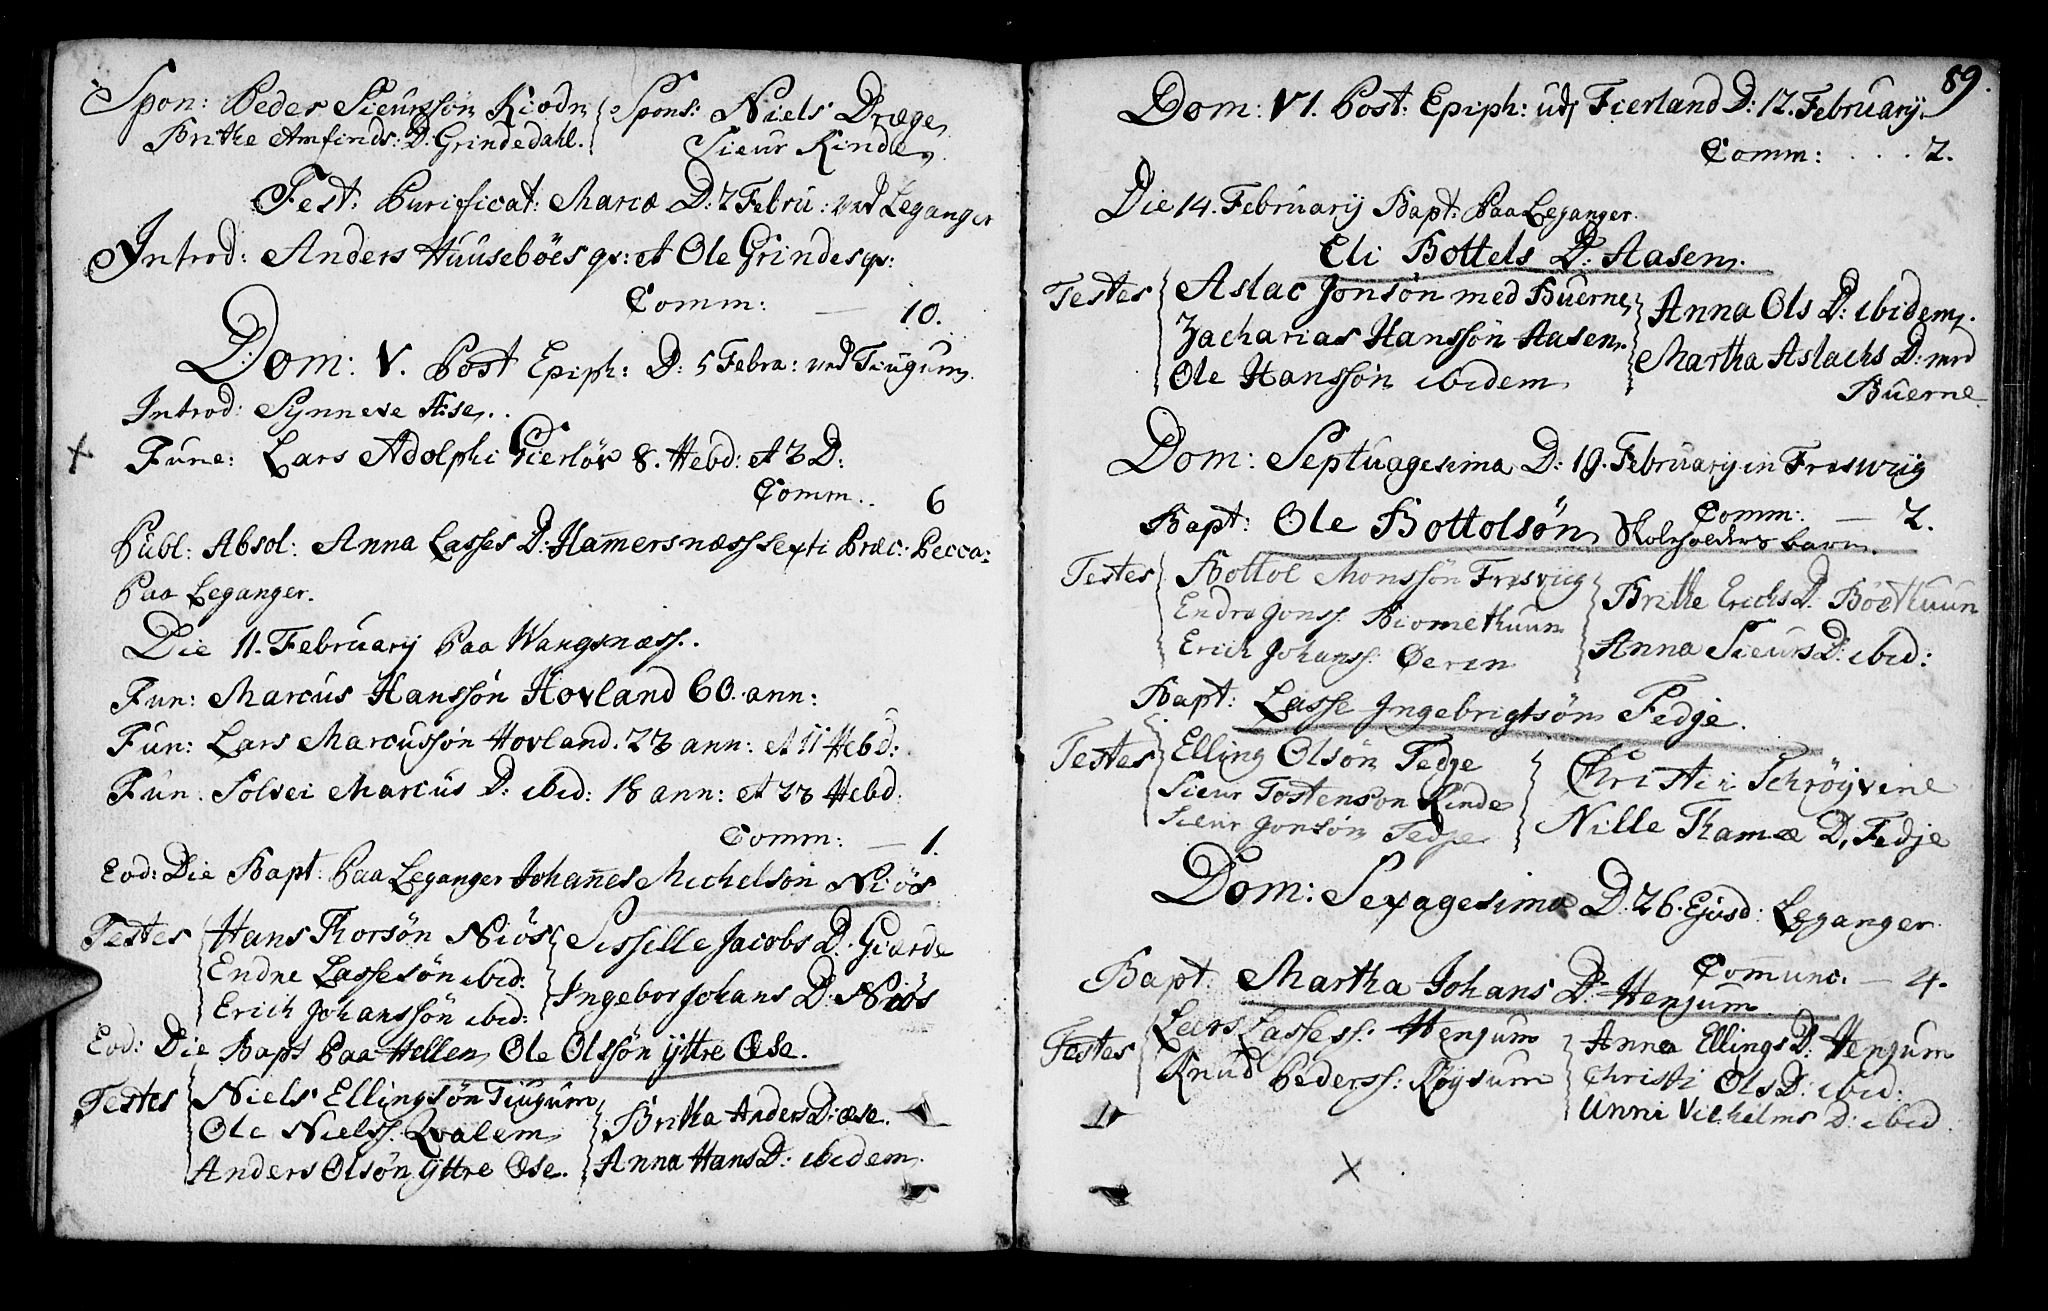 Spon: Peder Sieurssøn Kiødn
Brithe Amfinds: D: Grindedahl.
Spons: Niels Dræge
Sieur Rinde.
Fest: Purificat: Mariæ D: 2 Febru: ved Leganger
Introd: Anders Huusebøes qs: et Ole Grindes qs:
Comm: — 10.
Dom: V. Post Epiph: D: 5 Febra: ved Tiugum.
Introd: Synneve Æse.
Fune: Lars Adolphi Gierløv 8. Hebd: et 3 D:
Comm. 6
Publ: Absol: Anna Lasses D: Ham̄ersnæss sexti Præc: Pecca:
Paa Leganger.
Die 11. February Paa Wangsnæss.
Fun: Marcus Hanssøn Hovland 60. ann:
Fun: Lars Marcussøn Hovland. 23 ann: et 11 Hebd:
Fun. Solvei Marcus D: ibid: 18 ann: et 23 Hebd.
Comm: — 1.
Eod: Die Bapt: Paa Leganger Johan̄es Michelsøn Niøs
Testes Hans Thorsøn Niøs
Endne Lassesøn ibid:
Erich Johanssøn ibid:
Sissille Jacobs D. Giarde
Ingebor Johans D: Niøs
Eod: Die Bapt Paa Hellen Ole Olssøn yttre Ose.
Testes Niels Ellingsøn Tiugum
Ole Nielss. Qvalem
Anders Olsøn yttre Ose.
Britha Anders D: æse.
Anna Hans D: ibidem.
89.
Dom: VI. Post: Epiph: udj Fierland D: 12. February.
Comm: . . . 2.
Die 14. February Bapt: Paa Leganger.
Eli Bottels D: Aasen.
Testes Aslac Jonsøn med Buerne
Zacharias Hanssøn Aasen.
Ole Hanssøn ibidem
Anna Ols D: ibidem.
Martha Aslachs D: med
Buerne
Dom: Septuagesima D: 19. February in Freswiig
Comm: — 2.
Bapt: Ole Bottolsøn Skoleholders barn.
Testes Bottol Monssøn Fresviig
Endre Jonss. Biomethuun
Erich Johanss. Øeren
Brithe Erichs D. Böethuun
Anna Sieurs D: ibid:
Bapt: Lasse Ingebrigtsøn Fedje.
Testes Elling Olsøn Fedje
Sieur Tostenson Rinde
Sieur Jonsøn Fedje
Christi Schrøyvine
Nille Thamæ D. Fedje
Dom: Sexagesima D: 26. Ejusd: Leganger.
Com̄unc. — 4.
Bapt: Martha Johans D: Henjum
Testes Lars Lassess. Henjum
Knud Pederss: Røysum
Anna Ellings D: Henjum
Christi Ols D: ibid:
Unni Vilhelms D: ibid.